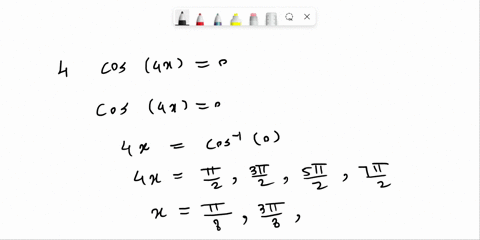 4 cos (4x) = 0
cos (4x) = 0
4x = cos⁻¹ (0)
4x = π/2 , 3π/2 , 5π/2 , 7π/2
x = π/8 , 3π/8 ,